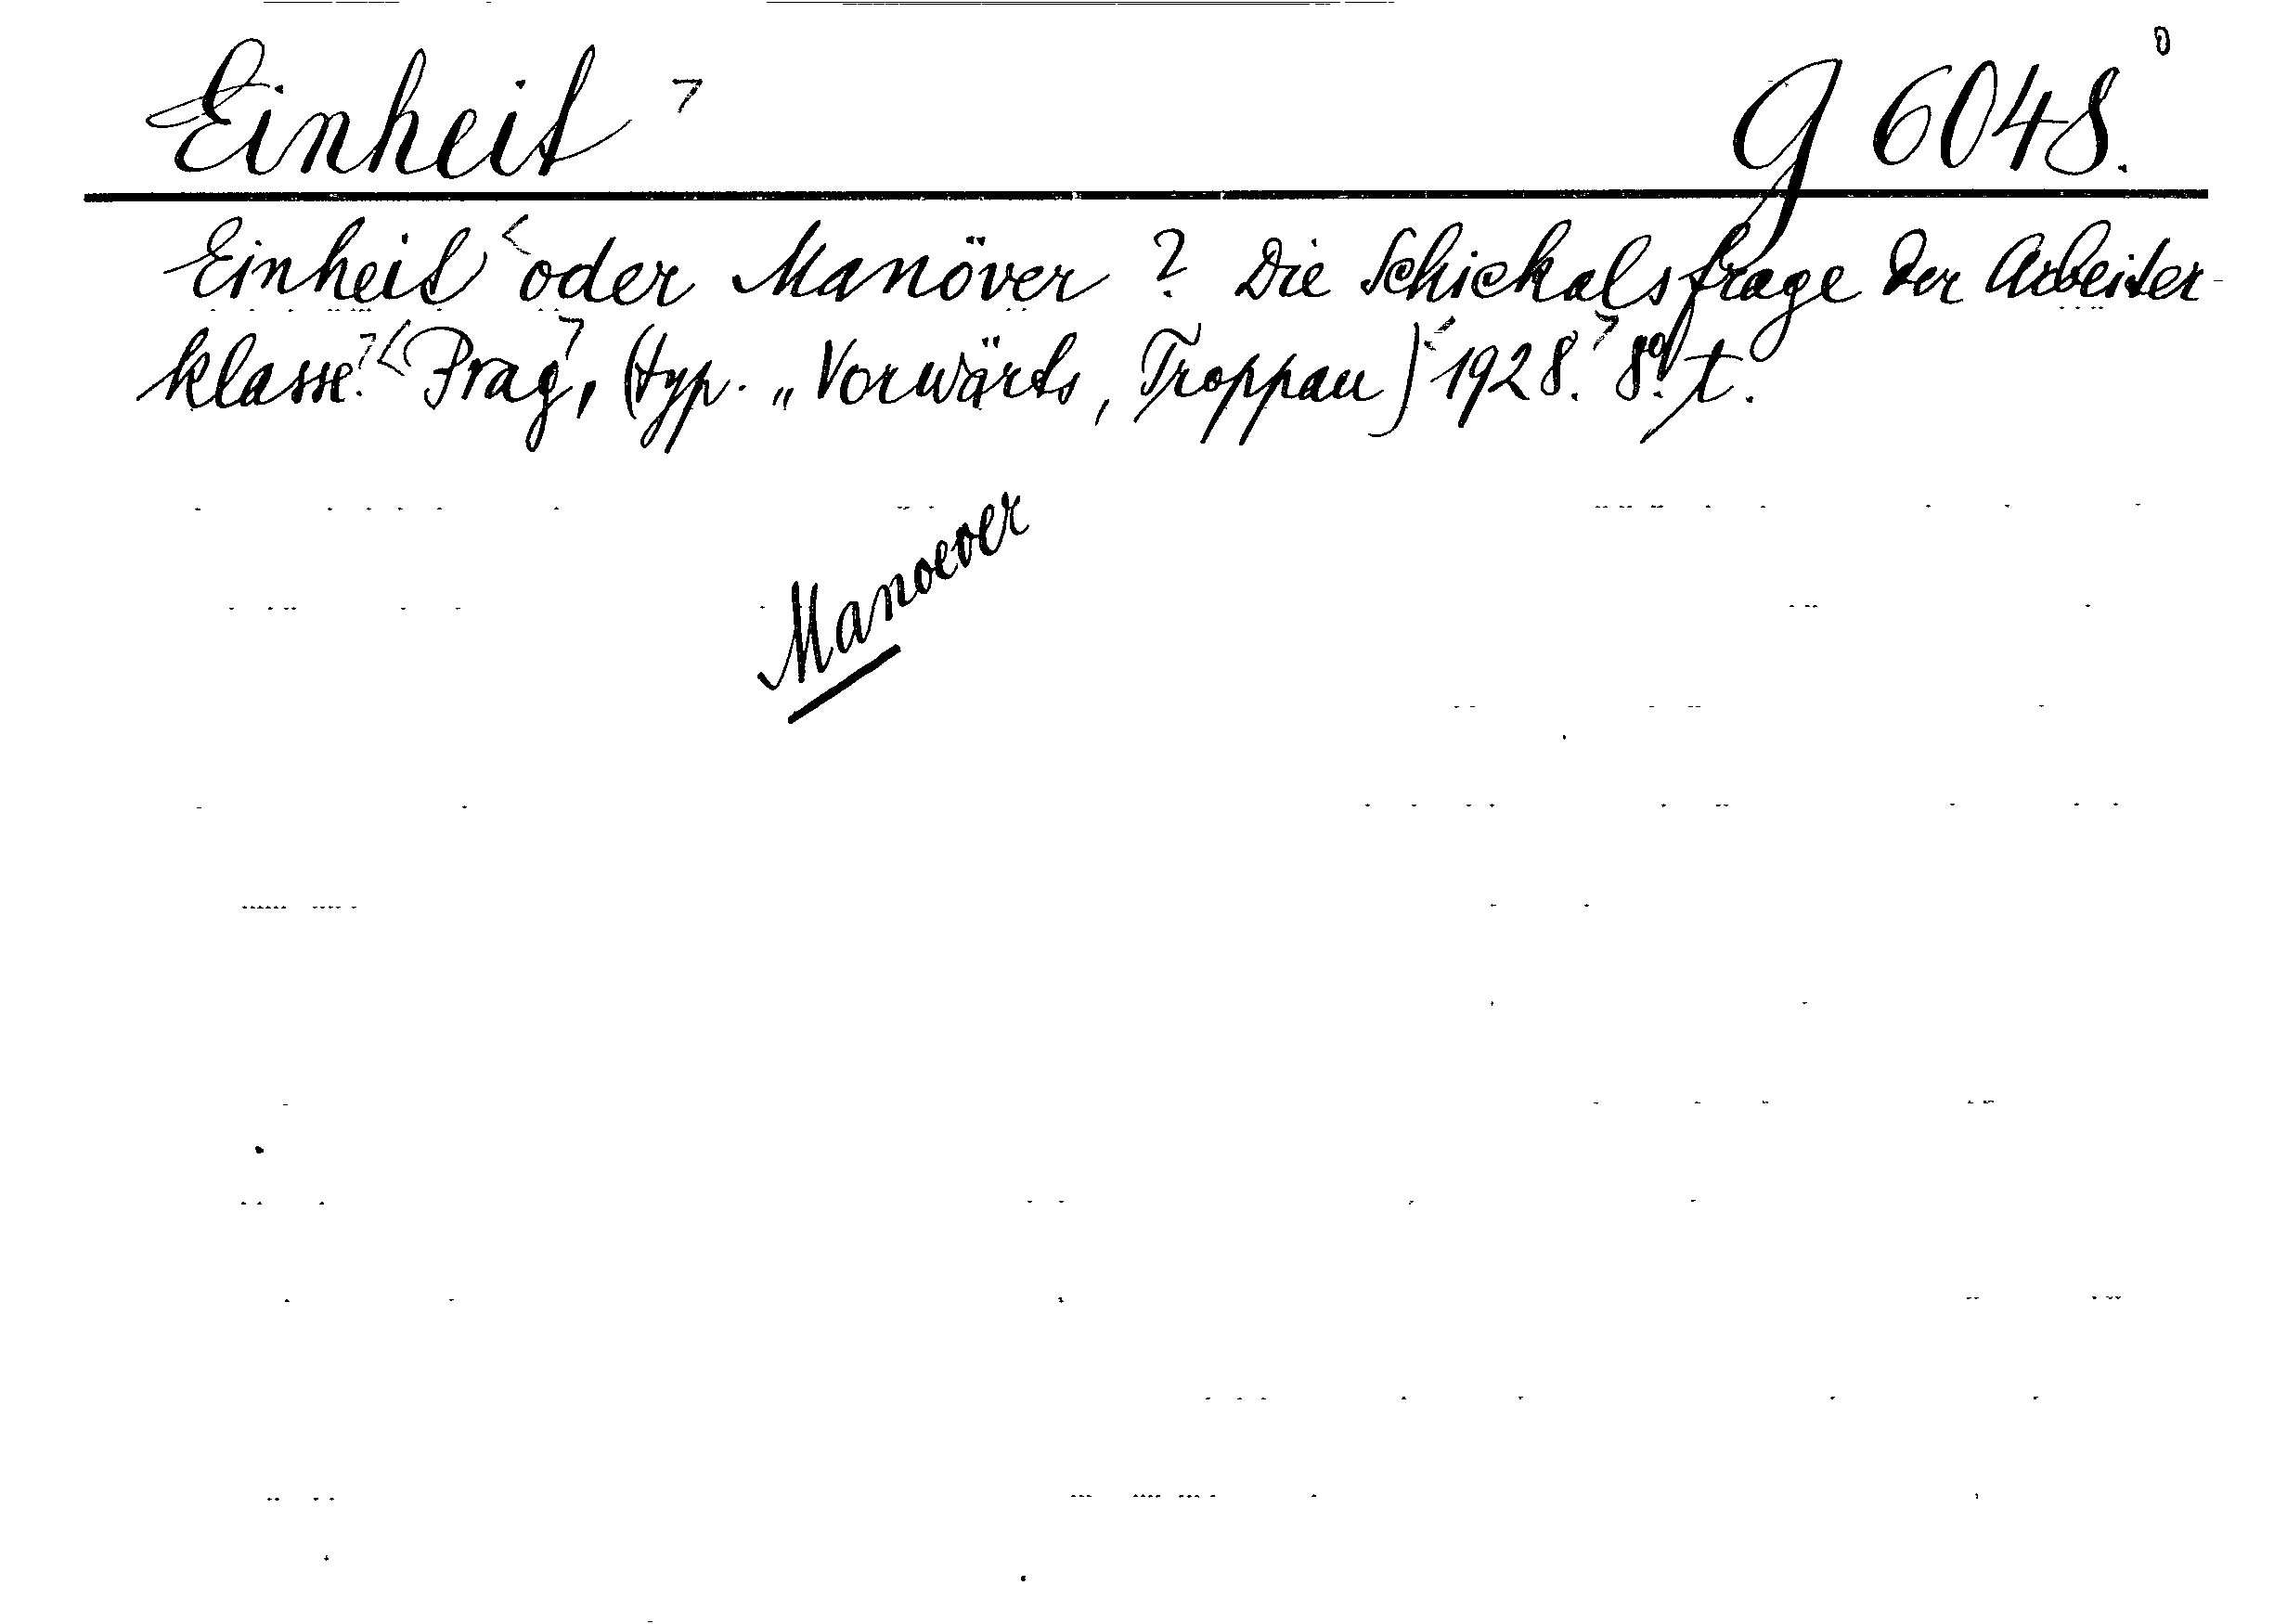 Einheit G 6048.
Einheit oder Manöver? Die Schickalsfrage der Arbeiter-
klasse. Prag, (typ. „Vorwärts, Troppau) 1928. 8°. t.
Manoever